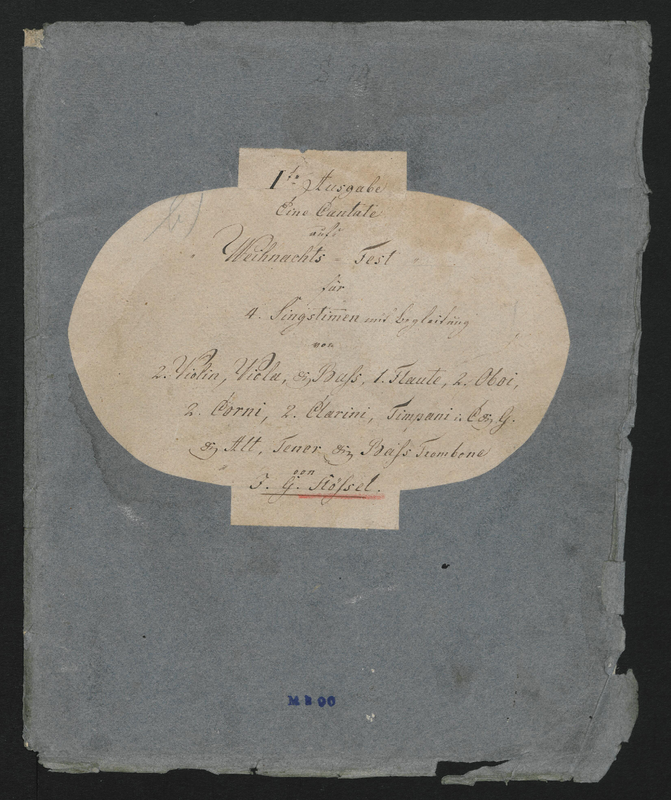 1te Ausgabe
Eine Cantate
aufs
Weihnachts - Fest
für
4. Singstimen mit begleitung
von
2. Violin, Viola, & Bass, 1. Flaute, 2. Oboi,
2. Corni, 2. Clarini, Timpani i: C & G.
& Alt, Tenor & Bass Trombone
von
J. G.
b)